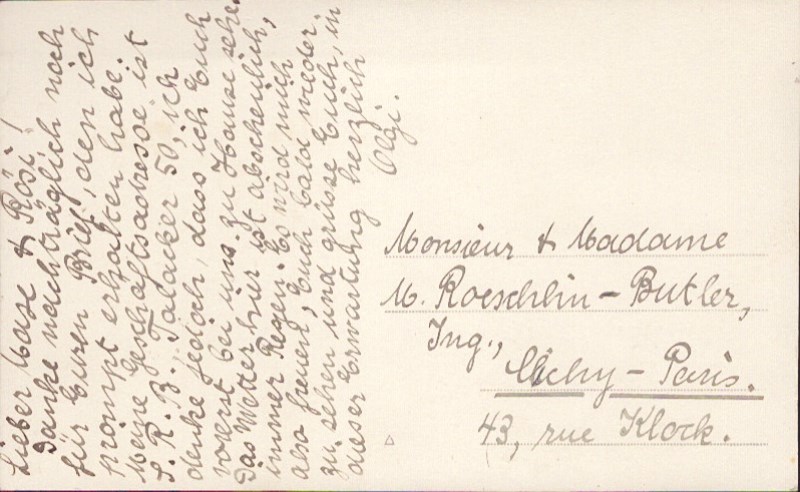 Lieber Max & Rösi!
Danke nachträglich noch
für Euren Brief, den ich
prompt erhalten habe.
Meine Geschäftsadresse ist
S. R. B. Talacker 50, ich
denke jedoch, dass ich Euch
vorerst bei uns zu Hause sehe.
Das Wetter hier ist abscheulich,
immer Regen. Es wird mich
also freuen, Euch bald wieder
zu sehen und grüsse Euch, in
dieser Erwartung herzlich
Olgi.
Monsieur & Madame
M. Roeschlin-Butler,
Ing.,
Clichy-Paris.
43, rue Klock.